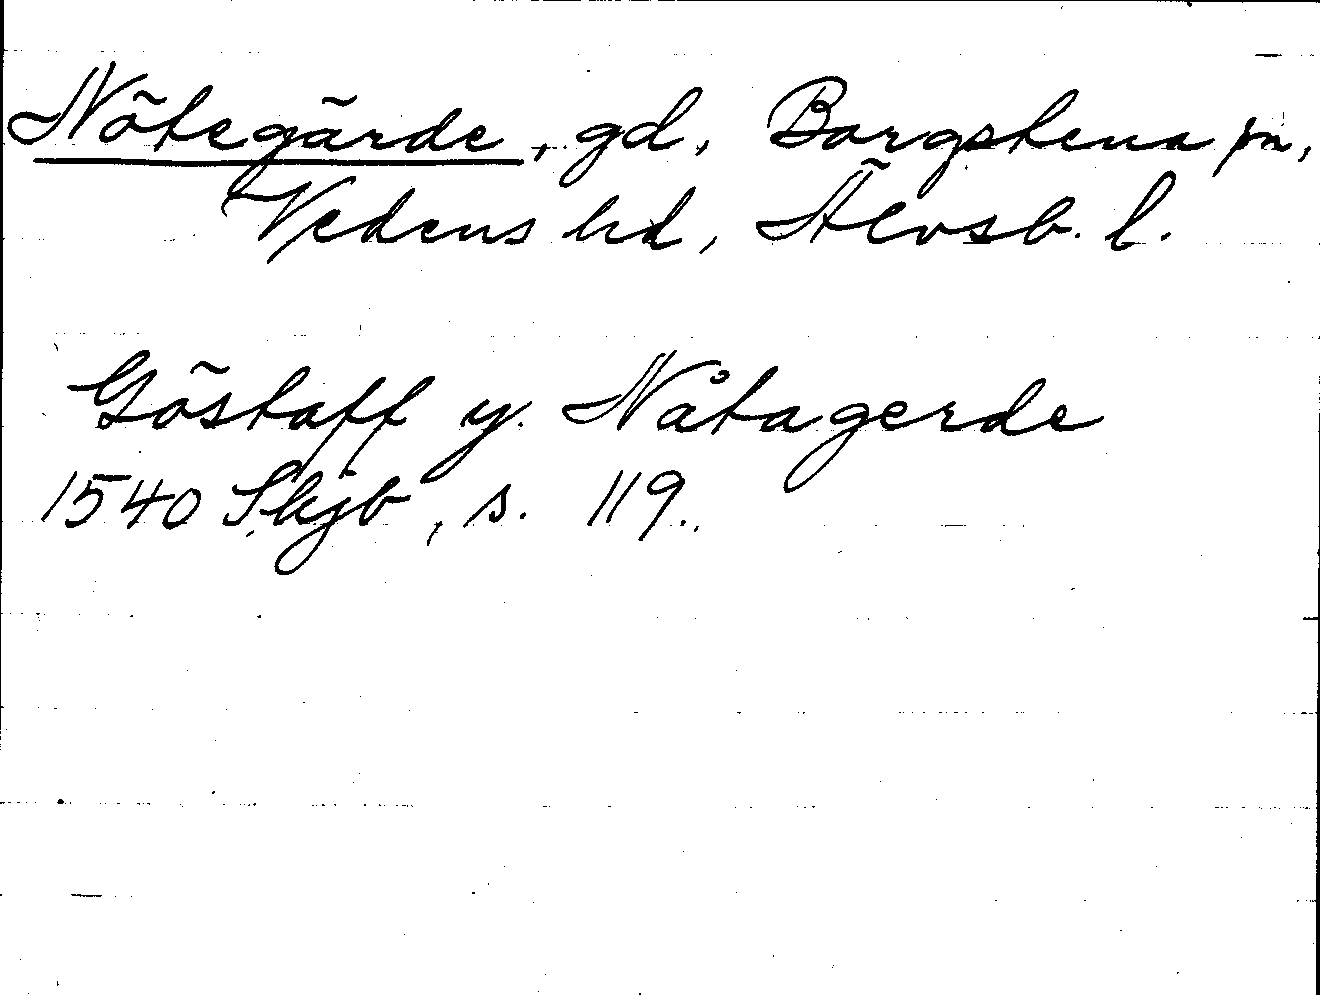 Nötegärde, gd, Borgstena sn,
Vedens hd, Älvsb. l.
Göstaff y. Nåtagerde
1540 Skjb, s. 119.